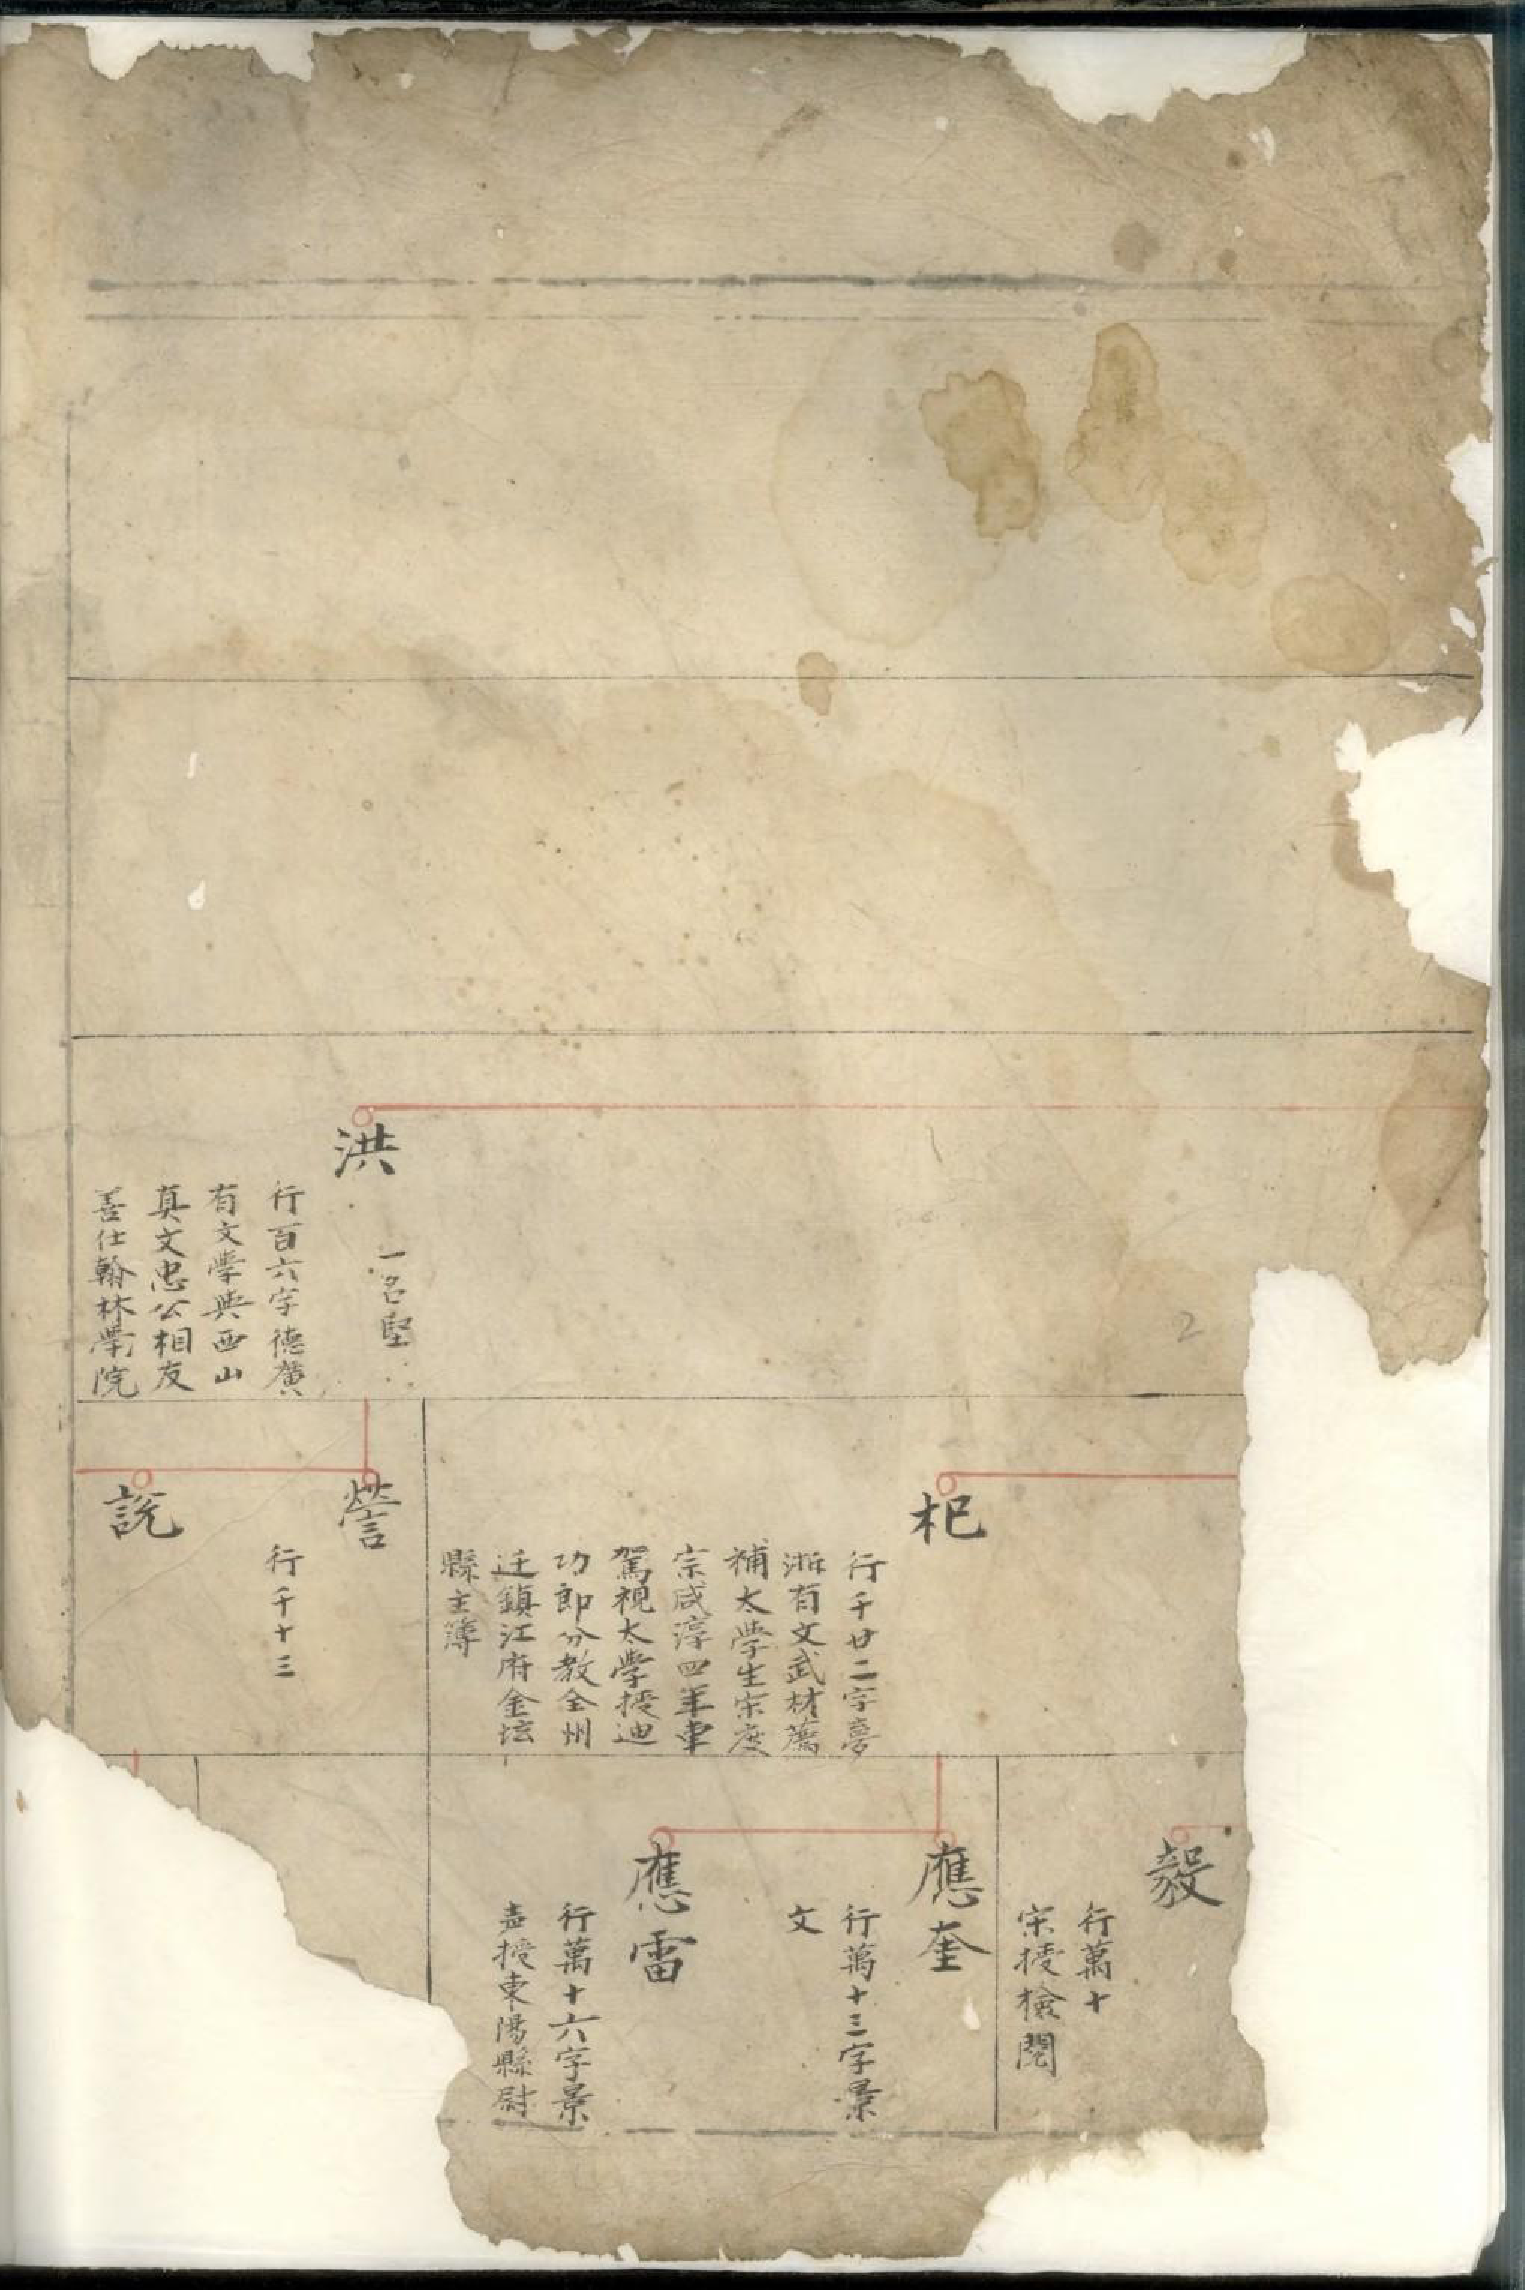 洪
一名堅
行百六字德廣
有文學與西山
真文忠公相友
善仕翰林學院
2
杞
行千廿二字夢
浙有文武材薦
補太學生宋度
宗咸淳四年車
駕視太學授迪
功郎分教全州
迁鎮江府金坛
縣主簿
謍
行千十三
說
毅
行萬十
宋授檢閱
應奎
行萬十三字景
文
應雷
行萬十六字景
授東陽縣尉